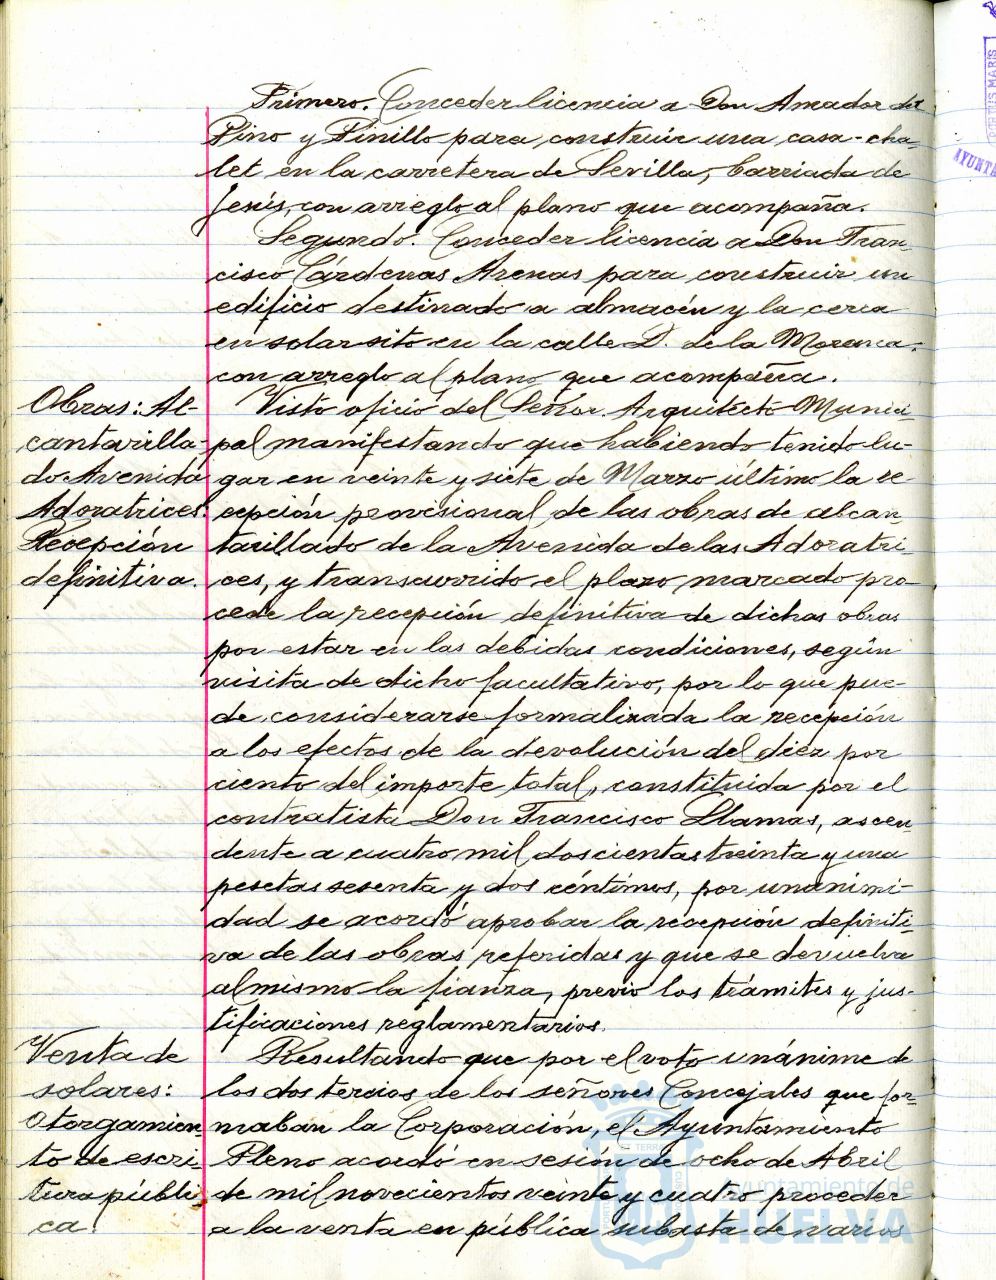 Primero. Conceder licencia a Don Amador del
Pino y Pinillo para construir una casa-cha-
let en la carretera de Sevilla, barriada de
Jesús, con arreglo al plano que acompaña.
Segundo. Conceder licencia a Don Fran-
cisco Cárdenas Arenas para construir un
edificio destinado a almacén y la cerca
en solar sito en la calle D. de la
con arreglo al plano que acompaña.
Obras: Al-
cantarilla-
do Avenida
Adoratrices.
Recepción
definitiva.
Visto oficio del Señor Arquitecto Munici-
pal manifestando que habiendo tenido lu-
gar en veinte y siete de Marzo último la re-
cepción provisional de las obras de alcan-
tarillado de la Avenida de las Adoratri-
ces, y transcurrido el plazo marcado pro-
cede la recepción definitiva de dichas obras
por estar en las debidas condiciones, según
visita de dicho facultativo, por lo que pue-
de considerarse formalizada la recepción
a los efectos de la devolución del diez por
ciento del importe total, constituida por el
contratista Don Francisco Llamas, ascen-
dente a cuatro mil doscientas treinta y una
pesetas sesenta y dos céntimos, por unanimi-
dad se acordó aprobar la recepción definiti-
va de las obras referidas y que se devuelva
al mismo la fianza, previo los trámites y jus-
tificaciones reglamentarios.
Venta de
solares:
Otorgamien-
to de escri-
tura públi-
ca.
Resultando que por el voto unánime de
los dos tercios de los señores Concejales que for-
maban la Corporación, el Ayuntamiento
Pleno acordó en sesión de ocho de Abril
de mil novecientos veinte y cuatro proceder
a la venta en pública subasta de varios
Ayuntamiento de
HUELVA